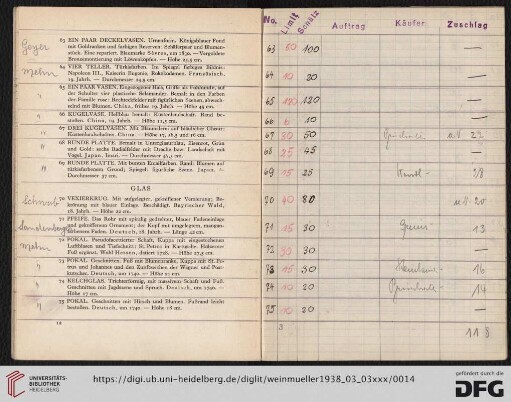 63 EIN PAAR DECKELVASEN. Urnenform. Königsblauer Fond
mit Goldranken und farbigen Reserven: Schäferpaar und Blumen-
stück. Eine repariert. Blaumarke Sèvres, um 1830. — Vergoldete
Bronzemontierung mit Löwenköpfen. — Höhe 29,5 cm.
64 VIER TELLER. Türkisfarben. Im Spiegel farbiges Bildnis:
Napoleon III., Kaiserin Eugenie, Rokokodamen. Französisch,
19. Jahrh. — Durchmesser 24,5 cm.
65 EIN PAAR VASEN. Eingezogener Hals, Griffe als Fohhunde, auf
der Schulter vier plastische Salamander. Bemalt in den Farben
der Famille rose: Rechteckfelder mit figürlichen Szenen, abwech-
selnd mit Blumen. China, frühes 19. Jahrh. — Höhe 44 cm.
66 KUGELVASE. Hellblau bemalt: Küstenlandschaft. Rand be-
stoßen. China, 19. Jahrh. — Höhe 11,5 cm.
67 DREI KUGELVASEN. Mit Blaumalerei auf bläulicher Glasur:
Küstenlandschaften. China. — Höhe 17, 18,5 und 16 cm.
68 RUNDE PLATTE. Bemalt in Unterglasurblau, Eisenrot, Grün
und Gold: sechs Radialfelder mit Drache bzw. Landschaft mit
Vogel. Japan, Imari. — Durchmesser 45,5 cm.
69 RUNDE PLATTE. Mit bunten Emailfarben. Rand: Blumen auf
türkisfarbenem Grund; Spiegel: figürliche Szene. Japan. —
Durchmesser 37 cm.
GLAS
70 VEXIERKRUG. Mit aufgelegter, gekniffener Verzierung; Be-
krönung mit blauer Einlage. Beschädigt. Bayrischer Wald,
18. Jahrh. — Höhe 22 cm.
71 PFEIFE. Das Rohr mit spiralig gedrehter, blauer Fadeneinlage
und gekniffenem Ornament; der Kopf mit umgelegtem, mangan-
gefärbtem Faden. Deutsch, 18. Jahrh. — Länge 42 cm.
72 POKAL. Pseudofacettierter Schaft, Kuppa mit eingestochenen
Luftblasen und Tiefschnitt: St. Petrus in Kartusche. Hölzerner
Fuß ergänzt. Wohl Hessen, datiert 1728. — Höhe 27,5 cm.
73 POKAL. Geschnitten. Fuß mit Blumenranke, Kuppa mit St. Pe-
trus und Johannes und den Zunftzeichen der Wagner und Post-
kutscher. Deutsch, um 1740. — Höhe 21 cm.
74 KELCHGLAS. Trichterförmig, mit massivem Schaft und Fuß.
Geschnitten mit Jagdszene und Spruch. Deutsch, um 1740. —
Höhe 17 cm.
75 POKAL. Geschnitten mit Hirsch und Blumen. Fußrand leicht
bestoßen. Deutsch, um 1740. — Höhe 18 cm.
12
No. Limit Schätz Auftrag Käufer Zuschlag
63 50 100 —
64 10 20 —
65 120 —
66 6 10 —
67 30 50 22
68 25 45 —
69 15 25 28
70 40 80 20
71 15 30 13
30 30 —
15 30 16
74 10 20 14
75 10 20 —
118
UNIVERSITÄTS-
BIBLIOTHEK
HEIDELBERG
https://digi.ub.uni-heidelberg.de/diglit/weinmueller1938_03_03xxx/0014
gefördert durch die
DFG